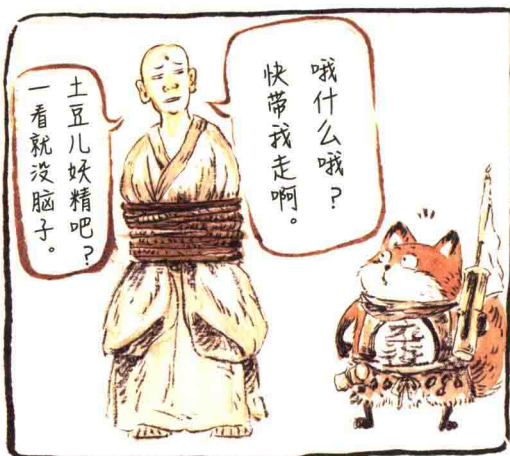 哦什么哦？
快带我走啊。
土豆儿妖精吧？
一看就没脑子。